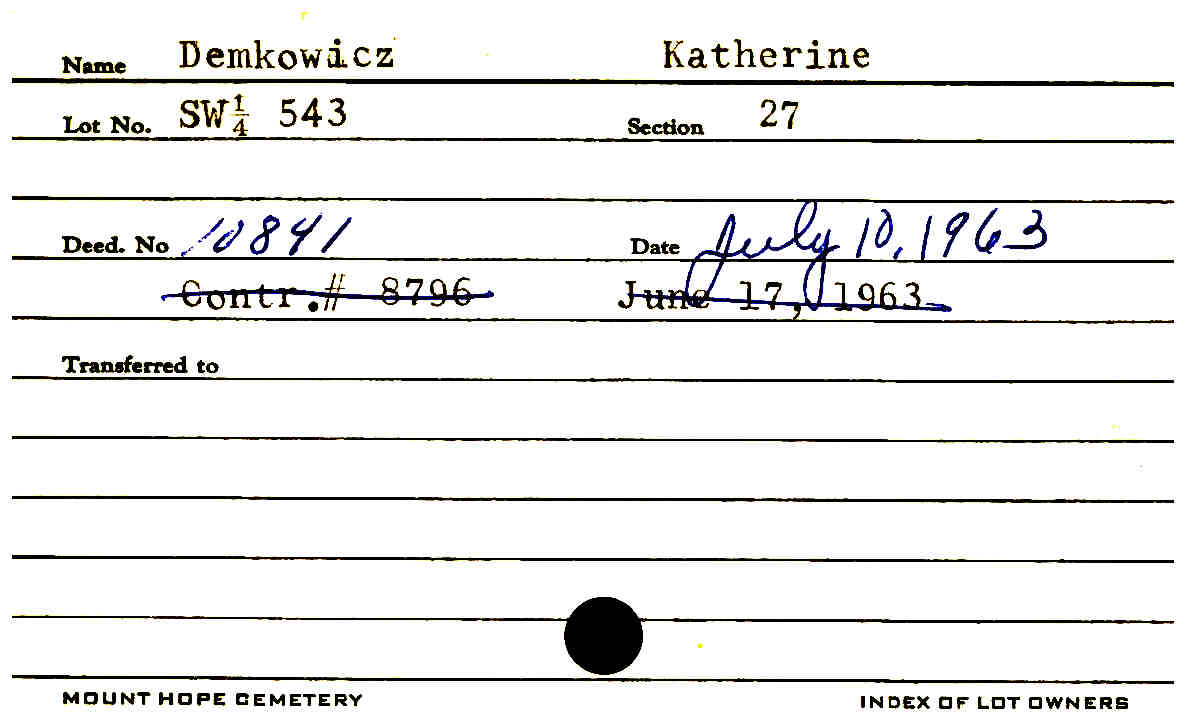 Name Demkowicz Katherine
Lot No. SW¼ 543 Section 27
Deed. No 10841 Date July 10, 1963
Contr.# 8796 June 17, 1963
Transferred to
MOUNT HOPE CEMETERY INDEX OF LOT OWNERS